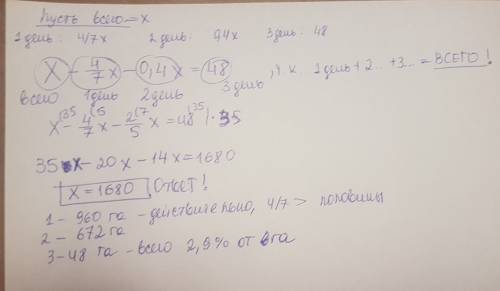 Пусть всего = x
1 день: 4/7x 2 день: 0,4x 3 день: 48
x - 4/7 x - 0,4x = 48 , т к. 1 день + 2... + 3... = ВСЕГО!
всего 1 день 2 день 3 день
x(35 - 4/7(5 x - 2/5(7 x = 48(35 | · 35
35x - 20x - 14x = 1680
x = 1680 Ответ!
1 - 960 га - действительно, 4/7 > половины
2 - 672 га
3 - 48 га - всего 2,9% от га